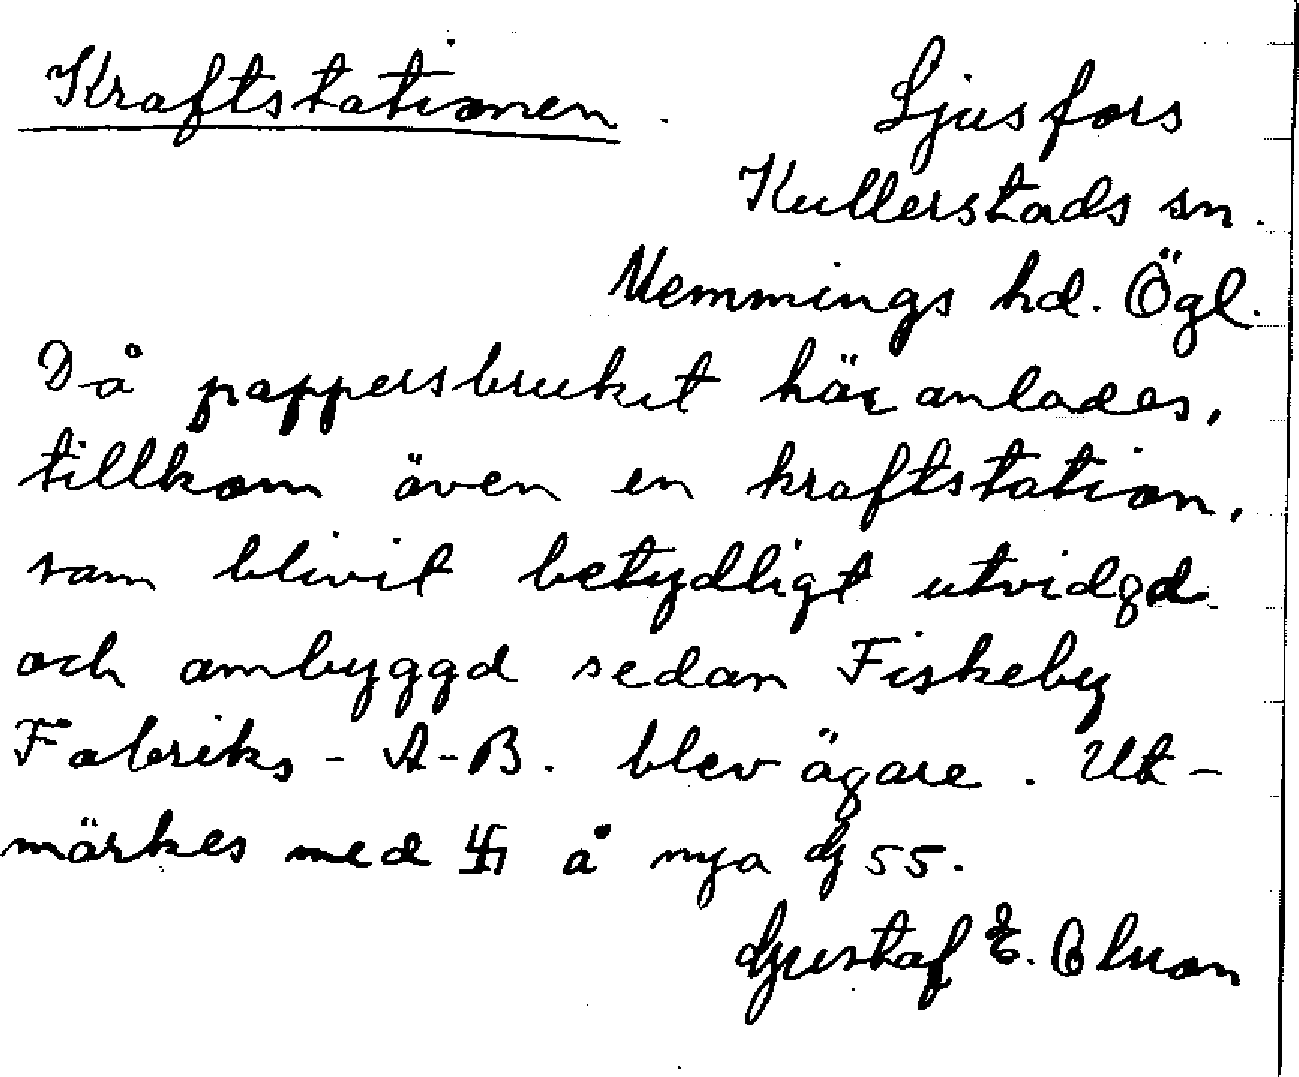 Kraftstationen. Ljusfors
Kullerstads sn.
Memmings hd. Ögl.
Då pappersbruket här anlades,
tillkom även en kraftstation,
som blivit betydligt utvidgd
och ombyggd sedan Fiskeby
Fabriks-A-B. blev ägare. Ut-
märkes med 卐 å nya G 55.
Gustaf E.